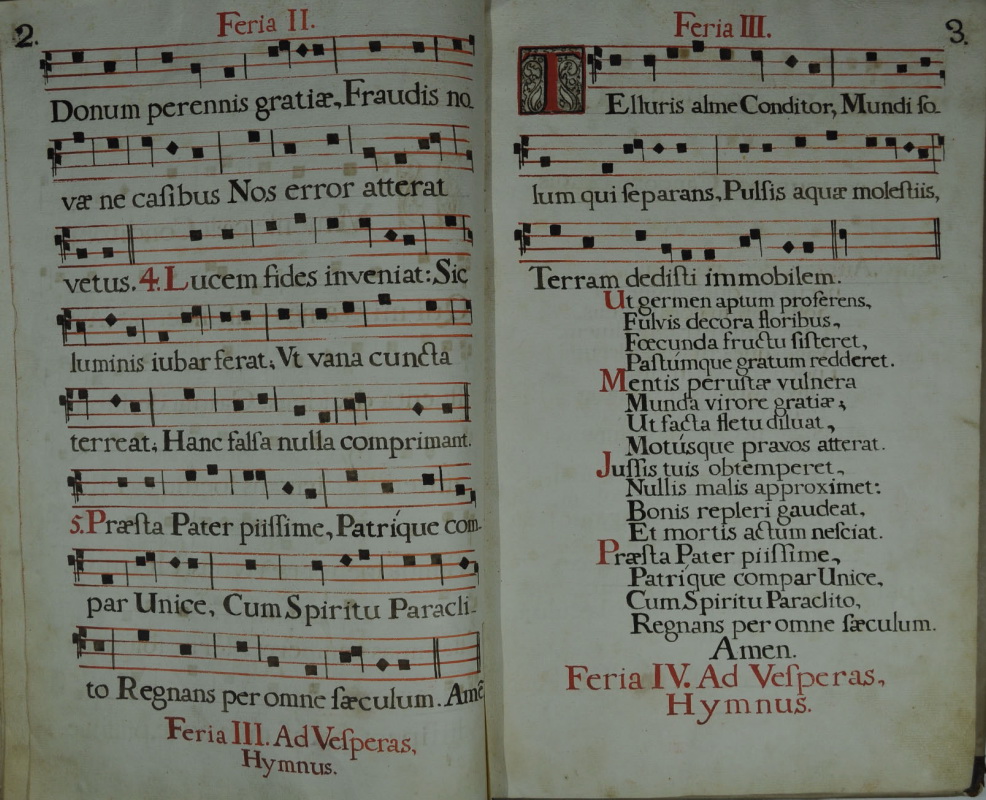 2.
Feria II.
Donum perennis gratiæ, Fraudis no
væ ne caſibus Nos error atterat
vetus. 4. Lucem fides inveniat: Sic
luminis iubar ferat, Vt vana cuncta
terreat; Hanc falſa nulla comprimant.
5. Præſta Pater piiſſime, Patríque com-
par Unice, Cum Spiritu Paracli-
to Regnans per omne ſæculum. Amē
Feria III. Ad Veſperas,
Hymnus.
3.
Feria III.
TElluris alme Conditor, Mundi ſo-
lum qui ſeparans, Pulſis aquæ moleſtiis,
Terram dediſti immobilem.
Ut germen aptum proferens,
Fulvis decora floribus,
Fœcunda fructu ſiſteret,
Paſtúmque gratum redderet.
Mentis peruſtæ vulnera
Munda virore gratiæ;
Ut facta fletu diluat,
Motúsque pravos atterat.
Juſſis tuis obtemperet,
Nullis malis approximet:
Bonis repleri gaudeat,
Et mortis actum neſciat.
Præſta Pater piiſſime,
Patríque compar Unice,
Cum Spiritu Paraclito,
Regnans per omne ſæculum.
Amen.
Feria IV. Ad Veſperas,
Hymnus.